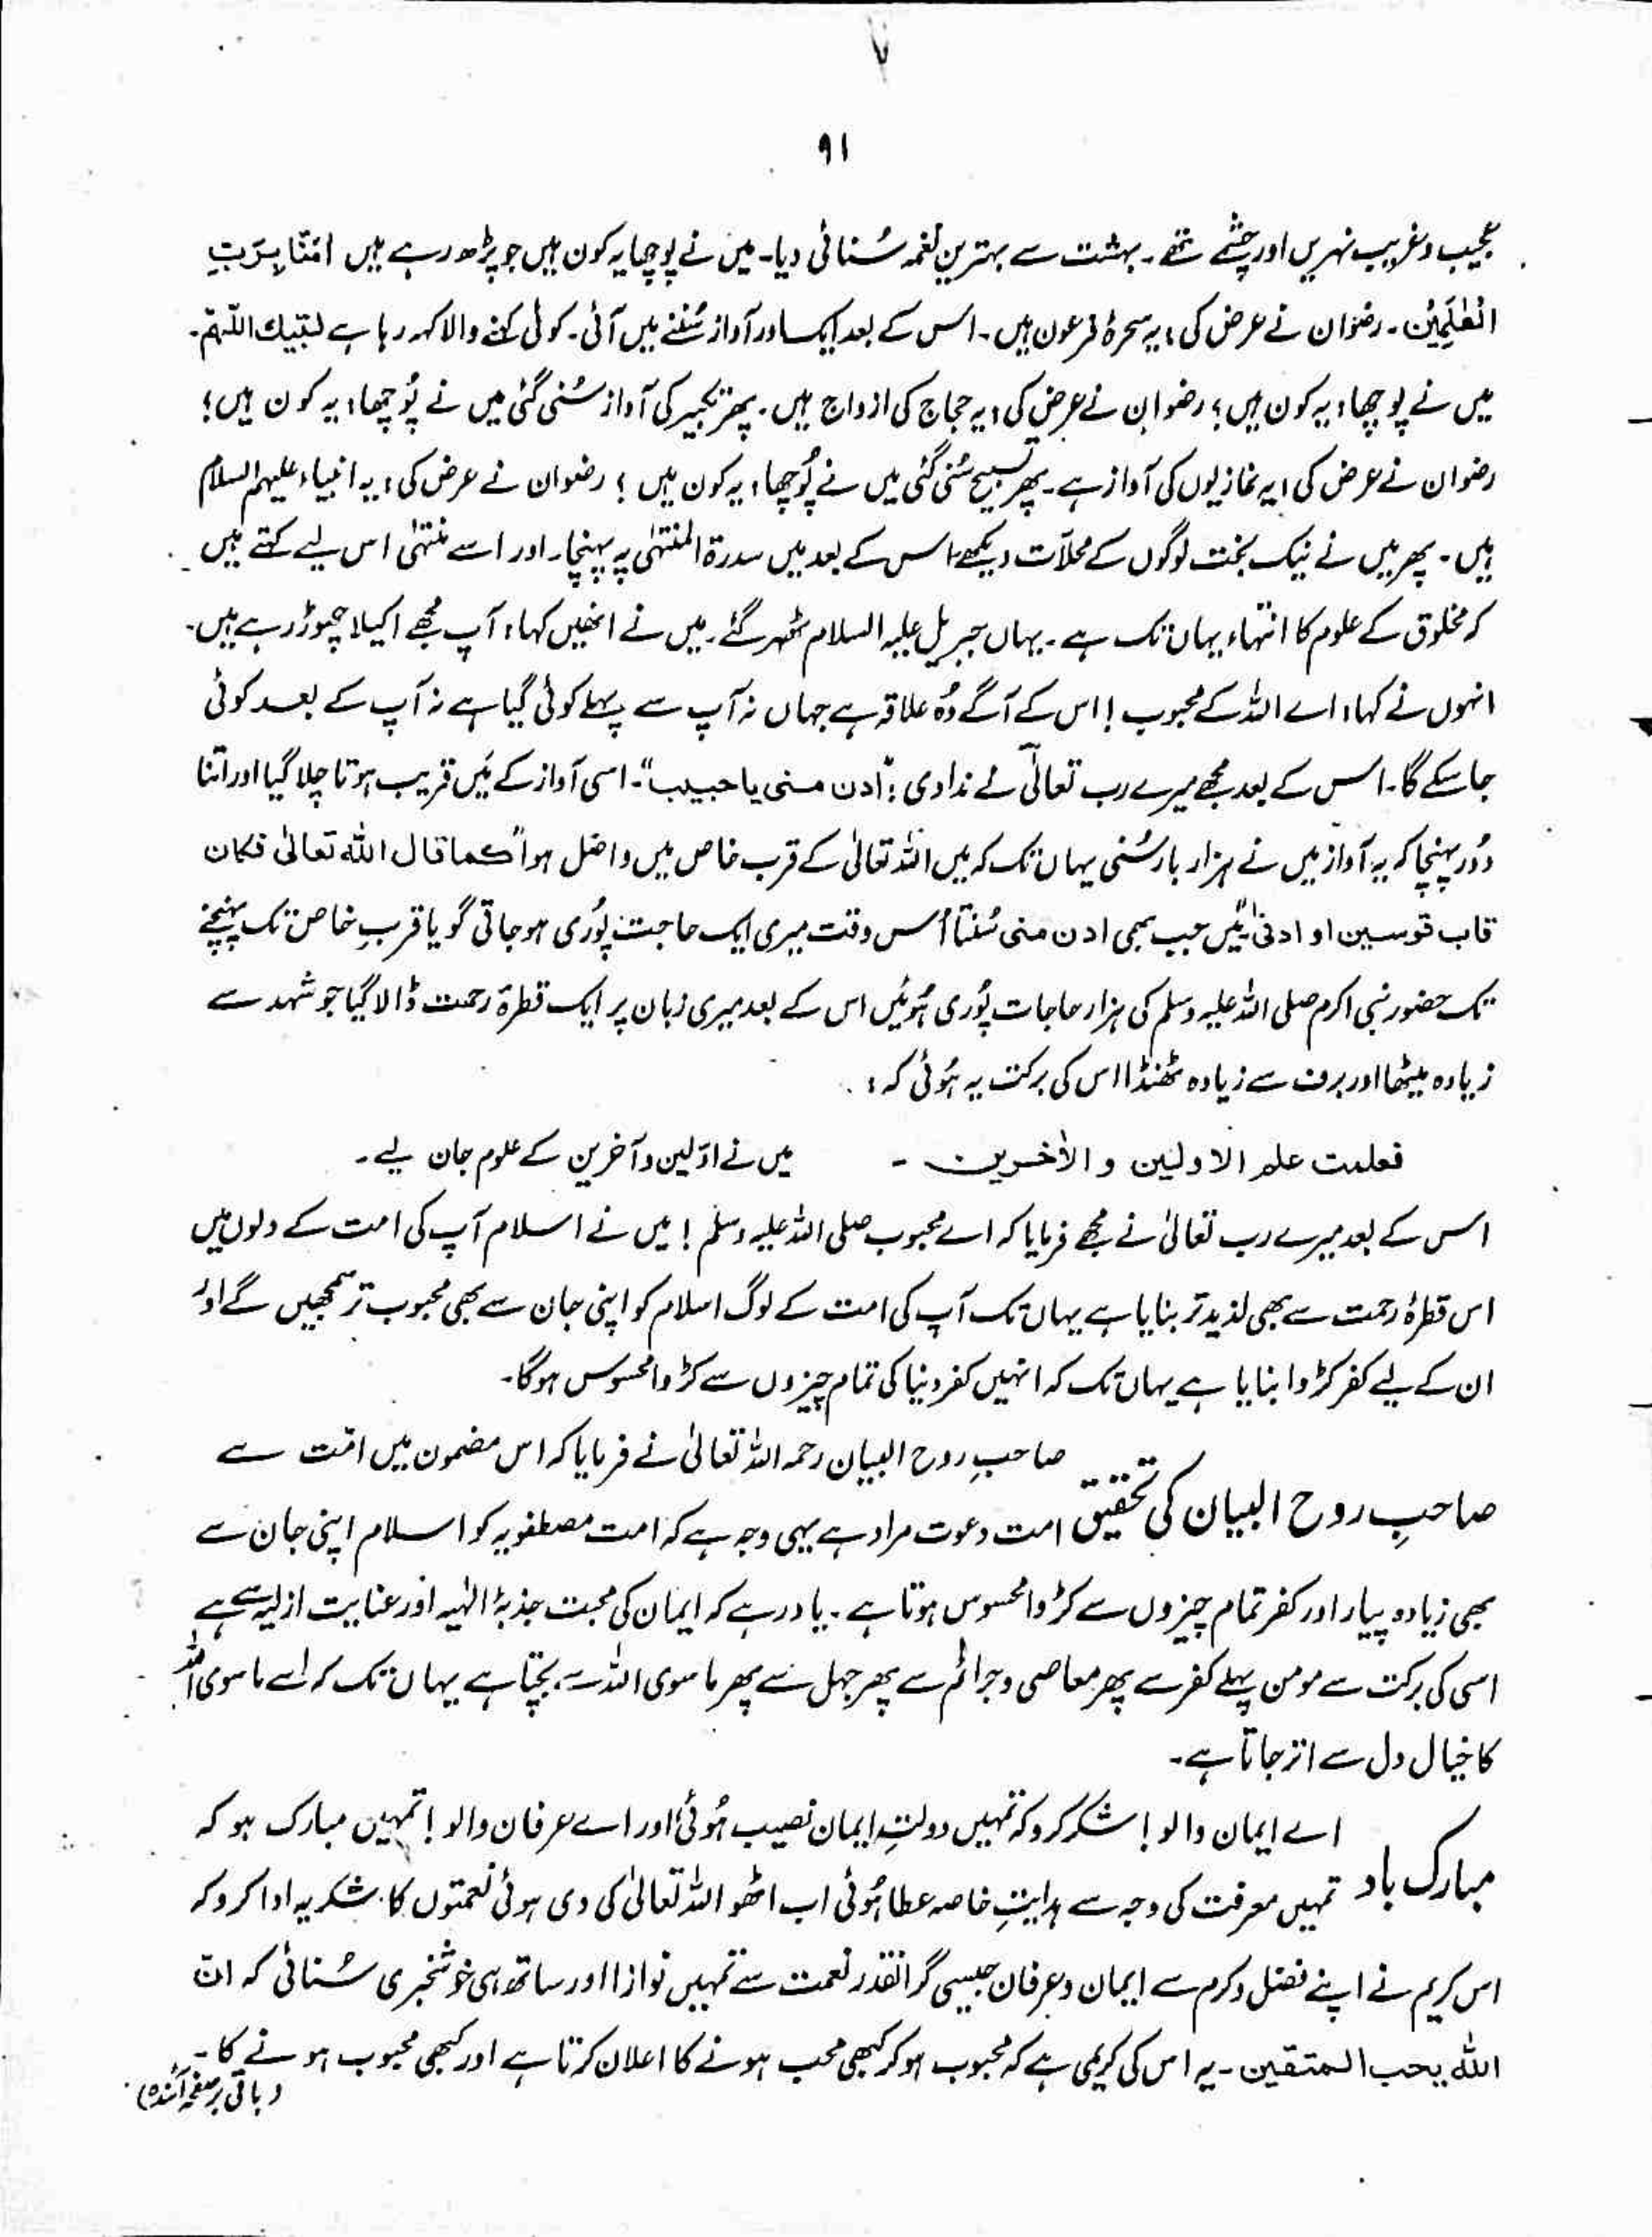 ۹۱
عجیب و غریب نہریں اور چشمے تھے۔ بہشت سے بہترین نغمہ سُنائی دیا۔ میں نے پوچھا یہ کون ہیں جو پڑھ رہے ہیں اٰمَنَّا بِرَبِّ
الْعٰلَمِیْن۔ رضوان نے عرض کی، یہ سحرۂ فرعون ہیں۔ اس کے بعد ایک اور آواز سُننے میں آئی۔ کوئی کہنے والا کہہ رہا ہے لبّیك اللّٰہمّ۔
میں نے پوچھا، یہ کون ہیں؟ رضوان نے عرض کی، یہ حجاج کی ازواج ہیں۔ پھر تکبیر کی آواز سُنی گئی میں نے پُوچھا، یہ کون ہیں؟
رضوان نے عرض کی، یہ غازیوں کی آواز ہے۔ پھر تسبیح سُنی گئی میں نے پُوچھا، یہ کون ہیں؟ رضوان نے عرض کی، یہ انبیاء علیہم السلام
ہیں۔ پھر میں نے نیک بخت لوگوں کے محلّات دیکھے، اس کے بعد میں سدرۃ المنتہٰی پہ پہنچا۔ اور اسے منتہٰی اس لیے کہتے ہیں
کہ مخلوق کے علوم کا انتہاء یہاں تک ہے۔ یہاں جبریل علیہ السلام ٹھہر گئے۔ میں نے انھیں کہا، آپ مجھے اکیلا چھوڑ رہے ہیں۔
انہوں نے کہا، اے اللہ کے محبوب! اس کے آگے وُہ علاقہ ہے جہاں نہ آپ سے پہلے کوئی گیا ہے نہ آپ کے بعد کوئی
جا سکے گا۔ اس کے بعد مجھے میرے رب تعالٰی نے ندا دی: "ادن منی یا حبیب"۔ اسی آواز کے مَیں قریب ہوتا چلا گیا اور اتنا
دُور پہنچا کہ یہ آواز میں نے ہزار بار سُنی یہاں تک کہ میں اللہ تعالیٰ کے قرب خاص میں داخل ہوا "کما قال اللہ تعالیٰ فکان
قاب قوسین او ادنیٰ" مَیں جب بھی ادن منی سُنتا اُس وقت میری ایک حاجت پُوری ہو جاتی گویا قربِ خاص تک پہنچنے
تک حضور نبی اکرم صلی اللہ علیہ وسلم کی ہزار حاجات پُوری ہُوئیں اس کے بعد میری زبان پر ایک قطرۂ رحمت ڈالا گیا جو شہد سے
زیادہ میٹھا اور برف سے زیادہ ٹھنڈا اس کی برکت یہ ہُوئی کہ:
فعلمت علم الاولین و الاٰخرین ۔ میں نے اوّلین و آخرین کے علوم جان لیے۔
اس کے بعد میرے رب تعالیٰ نے مجھے فرمایا کہ اے محبوب صلی اللہ علیہ وسلم! میں نے اسلام آپ کی امت کے دلوں میں
اس قطرۂ رحمت سے بھی لذیذ تر بنایا ہے یہاں تک آپ کی امت کے لوگ اسلام کو اپنی جان سے بھی محبوب تر سمجھیں گے اور
ان کے لیے کفر کڑوا بنایا ہے یہاں تک کہ انہیں کفر دنیا کی تمام چیزوں سے کڑوا محسوس ہوگا۔
صاحبِ روح البیان کی تحقیق صاحبِ روح البیان رحمہ اللہ تعالیٰ نے فرمایا کہ اس مضمون میں امّت سے
امت دعوت مراد ہے یہی وجہ ہے کہ امت مصطفویہ کو اسلام اپنی جان سے
بھی زیادہ پیار اور کفر تمام چیزوں سے کڑوا محسوس ہوتا ہے۔ یاد رہے کہ ایمان کی محبت جذبۂ الٰہیہ اور عنایت ازلیہ سے ہے
اسی کی برکت سے مومن پہلے کفر سے پھر معاصی و جرائم سے پھر جہل سے پھر ما سوی اللہ سے بچتا ہے یہاں تک کہ اسے ما سوی اللہ
کا خیال دل سے اتر جاتا ہے۔
مبارک باد اے ایمان والو! شکر کرو کہ تمہیں دولتِ ایمان نصیب ہُوئی اور اے عرفان والو! تمہیں مبارک ہو کہ
تمہیں معرفت کی وجہ سے ہدایتِ خاصہ عطا ہُوئی اب اٹھو اللہ تعالیٰ کی دی ہوئی نعمتوں کا شکریہ ادا کرو کہ
اس کریم نے اپنے فضل و کرم سے ایمان و عرفان جیسی گرانقدر نعمت سے تمہیں نوازا اور ساتھ ہی خوشخبری سُنائی کہ انّ
اللہ یحب المتقین۔ یہ اس کی کریمی ہے کہ محبوب ہو کر کبھی محب ہونے کا اعلان کرتا ہے اور کبھی محبوب ہونے کا۔
(باقی بر صفحہ آئندہ)